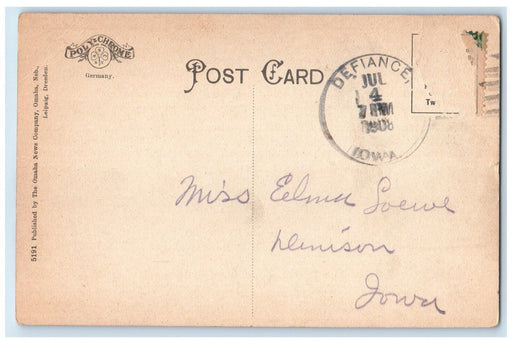 POLY-CHROME
Germany.
5191 Published by The Omaha News Company, Omaha, Neb.,
Leipzig, Dresden.
POST CARD
DEFIANCE,
JUL
4
7 AM
1908
IOWA
Tw
Miss Edna Loewe
Denison
Iowa